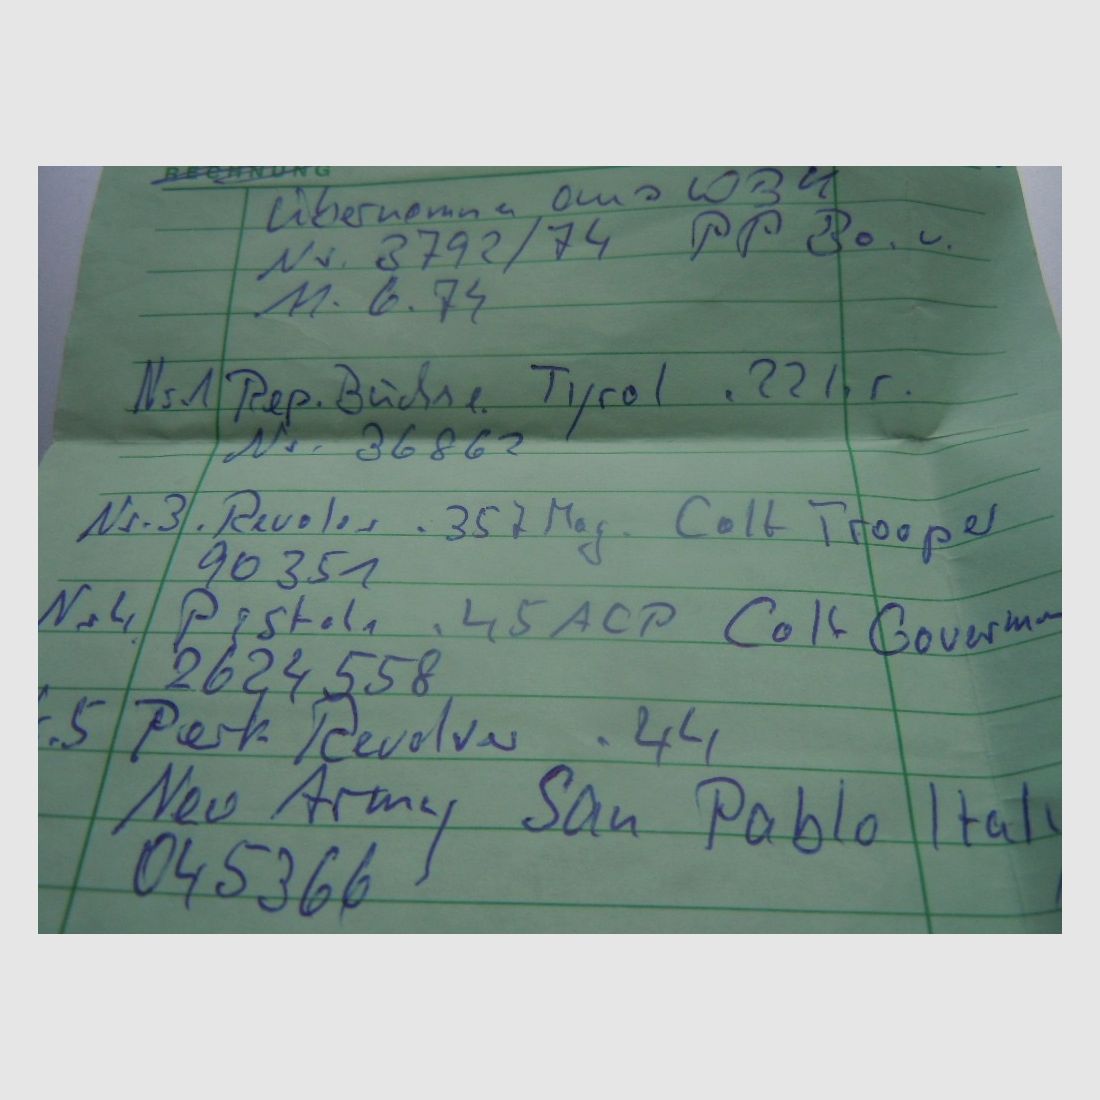 RECHNUNG
Übernomme aus WBK
Nr. 3792/74 PP Bo. v.
11. 6. 74
Nr.1 Rep. Büchse Tyrol .22 l.r.
Nr. 36862
Nr.3. Revolver .357 Mag. Colt Trooper
90351
Nr.4. Pistole .45 ACP Colt Governmen
2624558
.5 Perk Revolver .44
New Army San Pablo Itali
045366